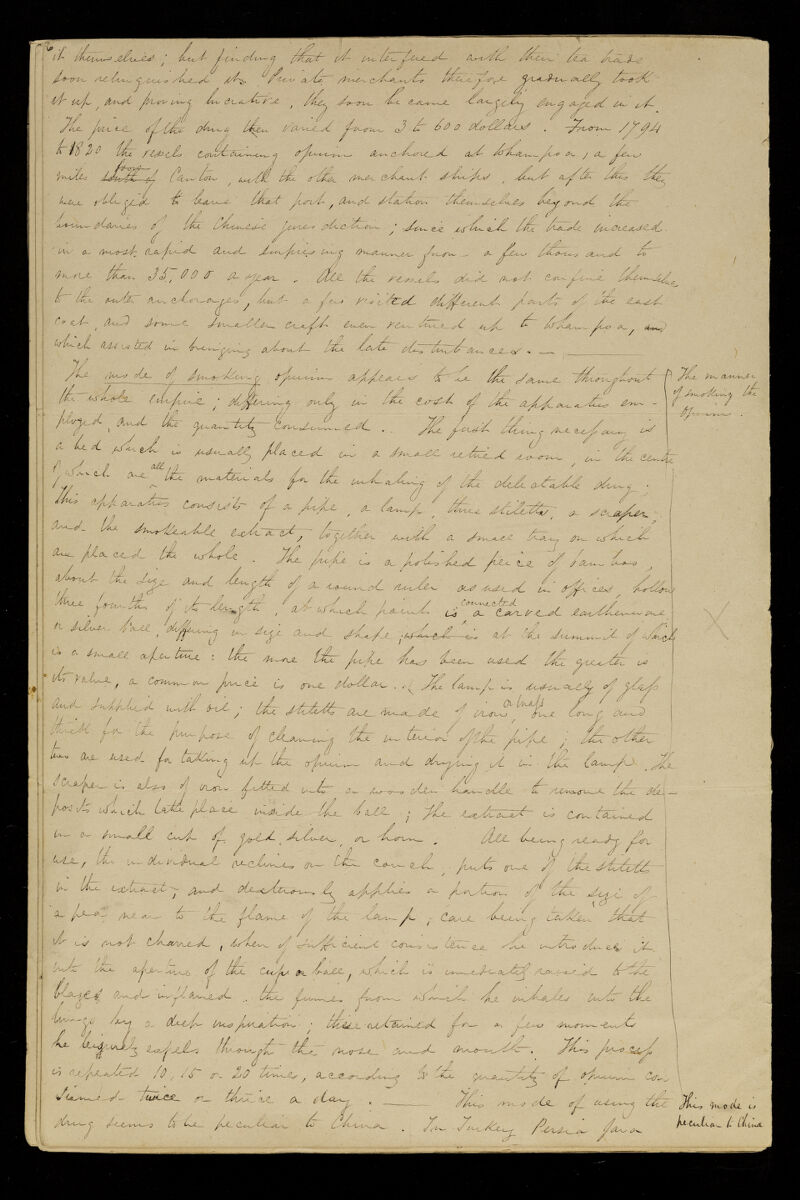 it themselves; but finding that it interfered with their tea trade
soon relinquished it. Private merchants therefore gradually took
it up, and proving lucrative, they soon became largely engaged in it.
The price of the drug then varied from 3 to 600 dollars. From 1794
to 1820 the vessels containing opium anchored at Whampoa, a few
miles south of from Canton, with the other merchant ships, but after this they
were obliged to leave that port, and station themselves beyond the
boundaries of the Chinese jurisdiction; since which the trade increased
in a most rapid and surprising manner from a few thousand to
more than 35,000 a year. All the vessels did not confine themselves
to the outer anchorages, but a few visited different parts of the east
coast, and some smaller craft even ventured up to Whampoa, and
which assisted in bringing about the late disturbances. —
The mode of smoking opium appears to be the same throughout
the whole empire; differing only in the cost of the apparatus em-
ployed, and the quantity consumed. The first thing necessary is
a bed which is usually placed in a small retired room, in the centre
of which are all the materials for the inhaling of the delectable drug;
This apparatus consists of a pipe, a lamp, three stiletts, a scraper,
and the smokeable extract, together with a small tray on which
are placed the whole. The pipe is a polished peice of bamboo,
about the size and length of a round ruler as used in offices, hollow
three fourths of its length, at which point is connected a carved earthenware
or silver ball, differing in size and shape, which is at the summit of which
is a small aperture: the more the pipe has been used the greater is
its value, a common price is one dollar. The lamp is usually of glass
and supplied with oil; the stiletts are made of iron or brass, one long and
thick for the purpose of cleaning the interior of the pipe; the other
two are used for taking up the opium and drying it in the lamp. The
scraper is also of iron fitted into a wooden handle to remove the de-
posits which take place inside the ball; The extract is contained
in a small cup of gold, silver, or horn. All being ready for
use, the individual reclines on the couch, puts one of the stiletts
in the extract, and dexterously applies a portion of the size of
a pea near to the flame of the lamp, care being taken that
it is not charred, when of sufficient consistence he introduces it
into the aperture of the cup or ball, which is immediately raised to the
blaze and inflamed. the fumes from which he inhales into the
lungs by a deep inspiration; these retained for a few moments
he leisurely expels through the nose and mouth. This process
is repeated 10, 15 or 20 times, according to the quantity of opium con
sumed twice or thrice a day. — This mode of using the
drug seems to be peculiar to China. In Turkey Persia Java
The manner
of smoking the
Opium.
This mode is
peculiar to China